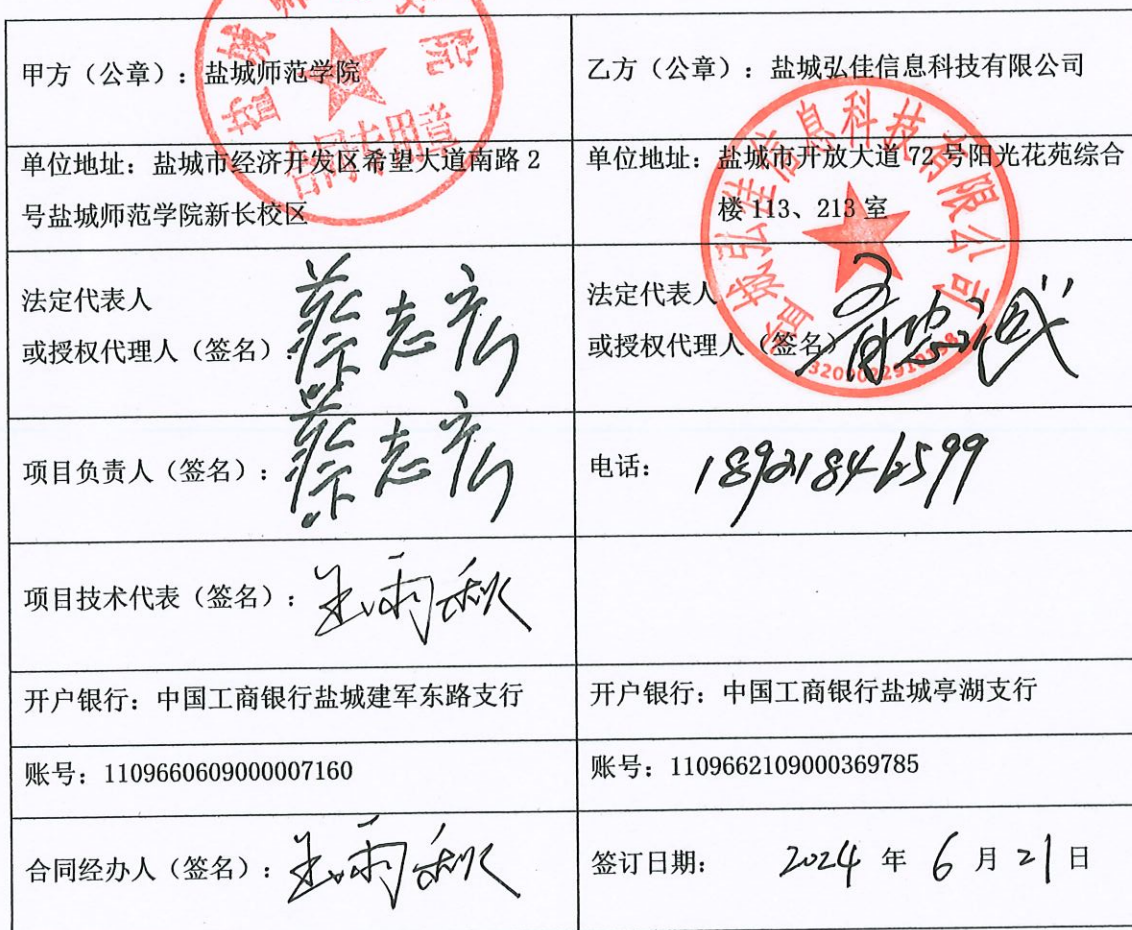 甲方（公章）：盐城师范学院
乙方（公章）：盐城弘佳信息科技有限公司
单位地址：盐城市经济开发区希望大道南路 2
号盐城师范学院新长校区
单位地址：盐城市开放大道 72 号阳光花苑综合
楼 113、213 室
法定代表人
或授权代理人（签名）：蔡志宏
法定代表人
或授权代理人（签名）
项目负责人（签名）：蔡志宏
电话：
项目技术代表（签名）：
开户银行：中国工商银行盐城建军东路支行
开户银行：中国工商银行盐城亭湖支行
账号：1109660609000007160
账号：1109662109000369785
合同经办人（签名）：
签订日期： 2024 年 6 月 21 日
合同专用章
盐城弘佳信息科技有限公司